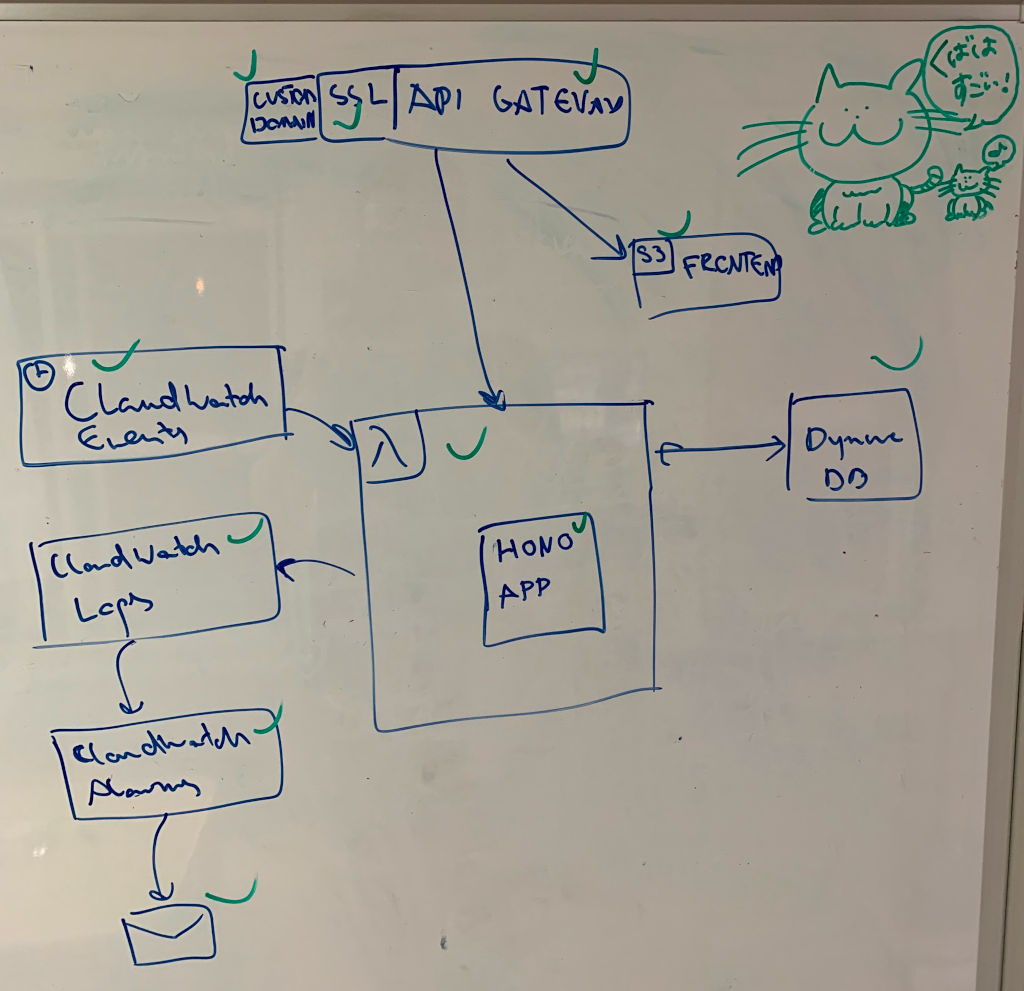 CUSTOM
DOMAIN
SSL
API GATEWAY
くばは
すごい!
S3
FRONTEND
CloudWatch
Events
λ
Dynamo
DB
HONO
APP
CloudWatch
Logs
CloudWatch
Alarms